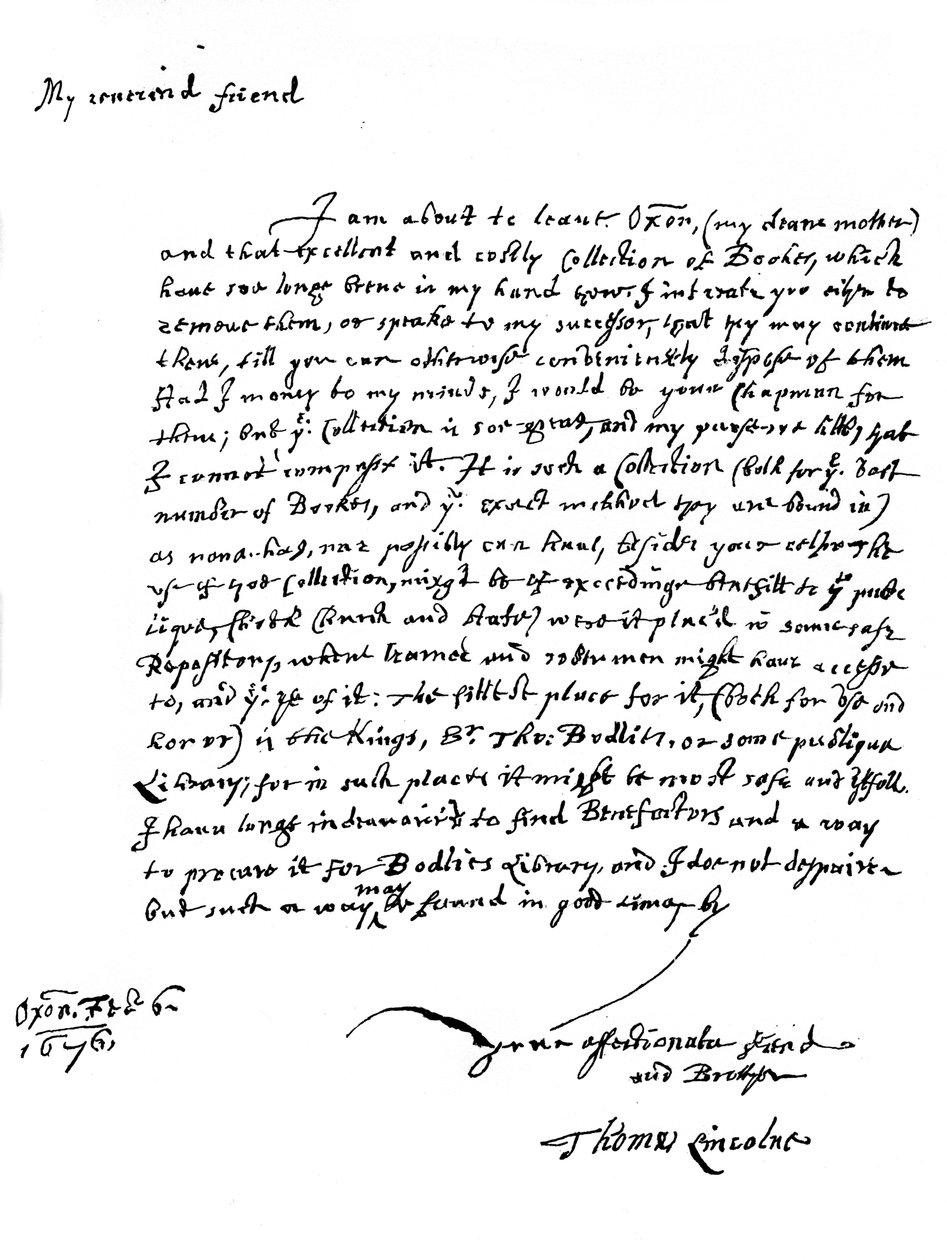 My reverend friend
I am about to leave Oxōn, (my deare mother)
and that excellent and costly Collection of Bookes, which
have soe longe beene in my hand now I intreate you either to
remove them, or speake to my successor, that they may continue
there, till you can otherwise conveniently dispose of them
Had I money to my minde, I would be your Chapman for
them; but yᵉ. Collection is soe great, and my purse soe little, that
I cannot compasse it. It is such a Collection (both for yᵉ. vast
number of Bookes, and yᵉ. exact method they are bound in)
as none has, nor possibly can have, besides your selfe. The
use of yᵗ Collection, might be of exceedinge benefitt to yᵉ publ
ique, (both Church and State) were it plac'd in some safe
Repository, where learned and sober men might have accesse
to, and yᵉ. use of it: The fittest place for it, (both for use and
honor) is the Kings, Sʳ. Tho: Bodlies, or some publique
Library; for in such places it might be most safe and usefull.
I have longe indeavour'd to find Benefactors and a way
to procure it for Bodlies Library, and I doe not despaire
but such a way may be found in good time by
Oxōn. Feb 6.
1676.
Your affectionate friend
and Brother
Thomas Lincolne